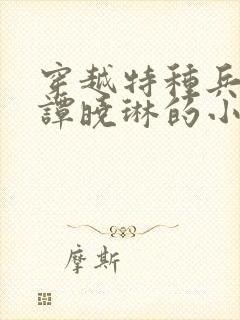 穿越特種兵
譚曉琳的小
摩斯